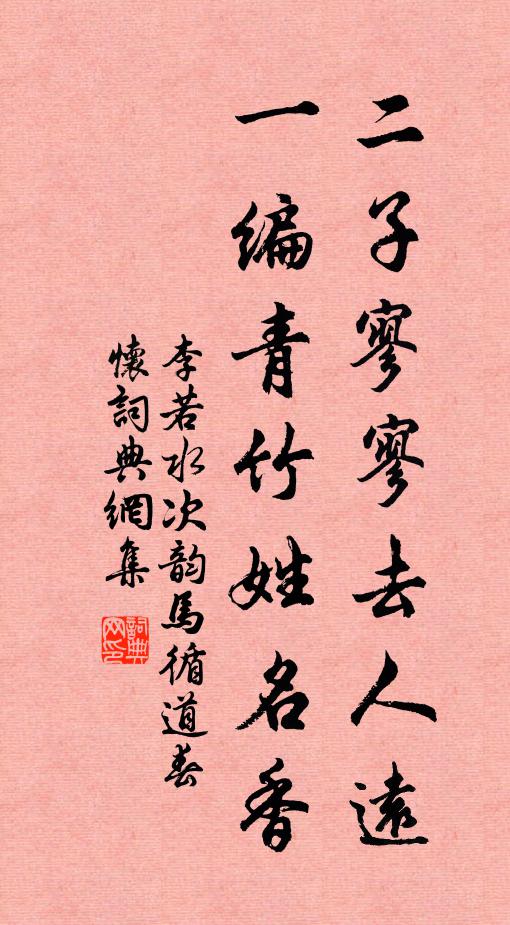 二子寥寥去人遠
一編青竹姓名香
李若水次韵馬循道春
懷詞典網集
詞典网印